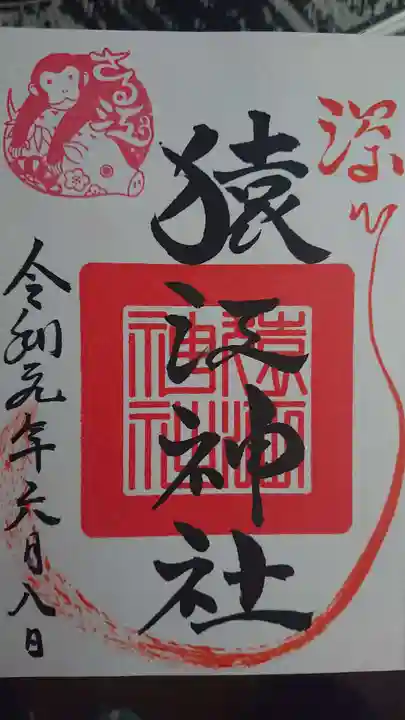 深川
猿江神社
猿江
神社
さる江
令和元年六月八日